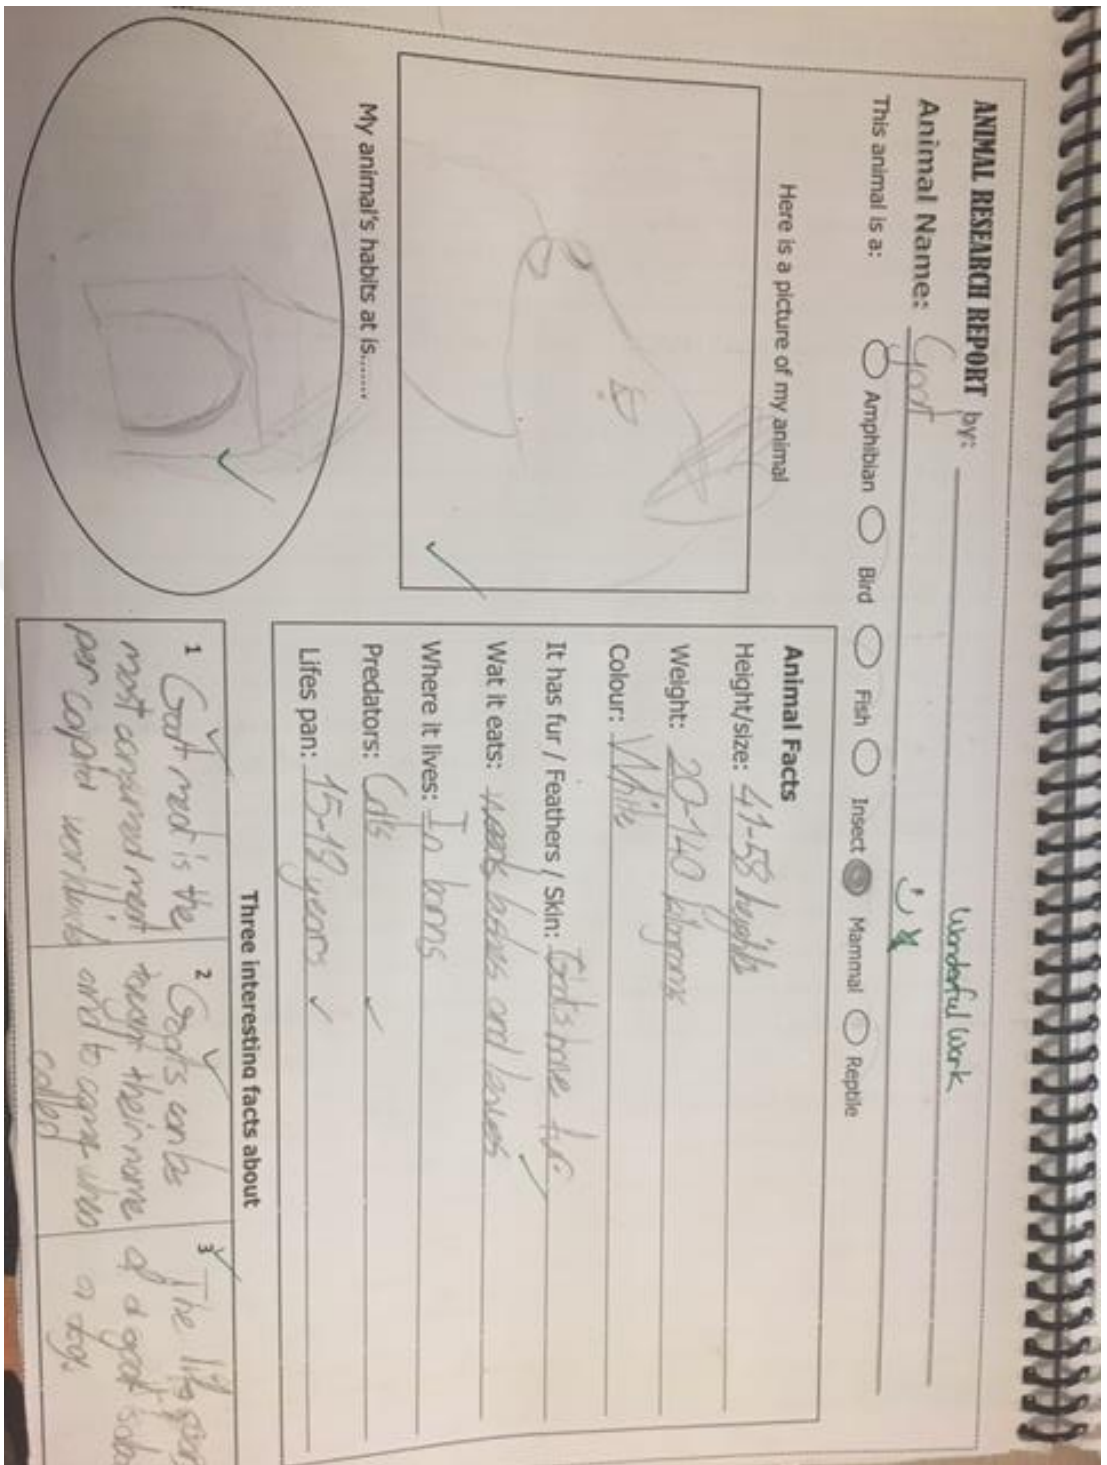 ANIMAL RESEARCH REPORT by:
Wonderful work
Animal Name: Goat
This animal is a: Amphibian Bird Fish Insect Mammal Reptile
Here is a picture of my animal
My animal's habits at is.......
Animal Facts
Height/size: 41-58
Weight: 20-140
Colour: White
It has fur / Feathers / Skin: Goats have fur
Wat it eats: bushes and leaves
Where it lives: In barns
Predators:
Lifes pan: 15-18 years
Three interesting facts about
1 Goat meat is the
most consumed meat
per
2 Goats can be
their name
and to come when
called
3 The life span
of a goat
a dog.